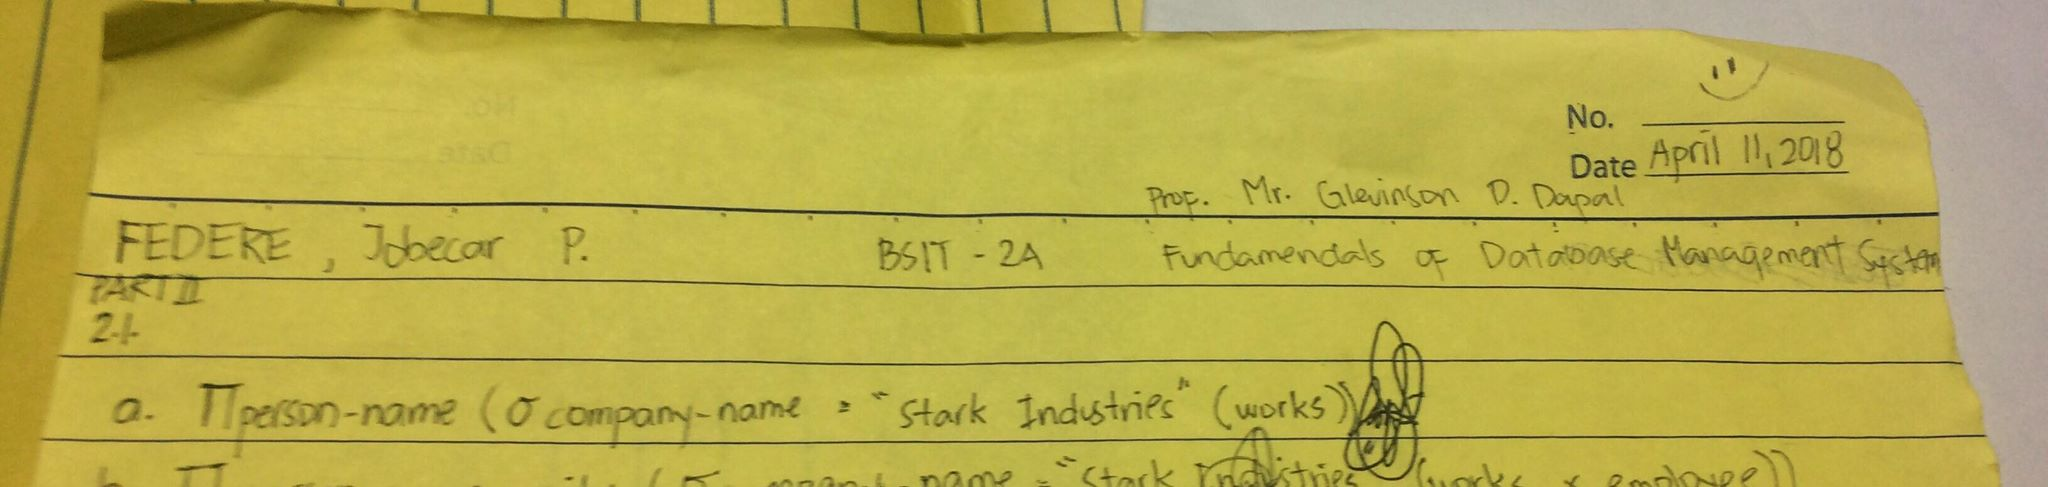 No.
Date April 11, 2018
Prof. Mr. Glevinson D. Dapal
FEDERE, Jobecar P. BSIT - 2A Fundamendals of Database Management System
PART II
2.1.
a. Π person-name (σ company-name = "Stark Industries" (works))
b. Π name = "Stark Industries (works x employee))